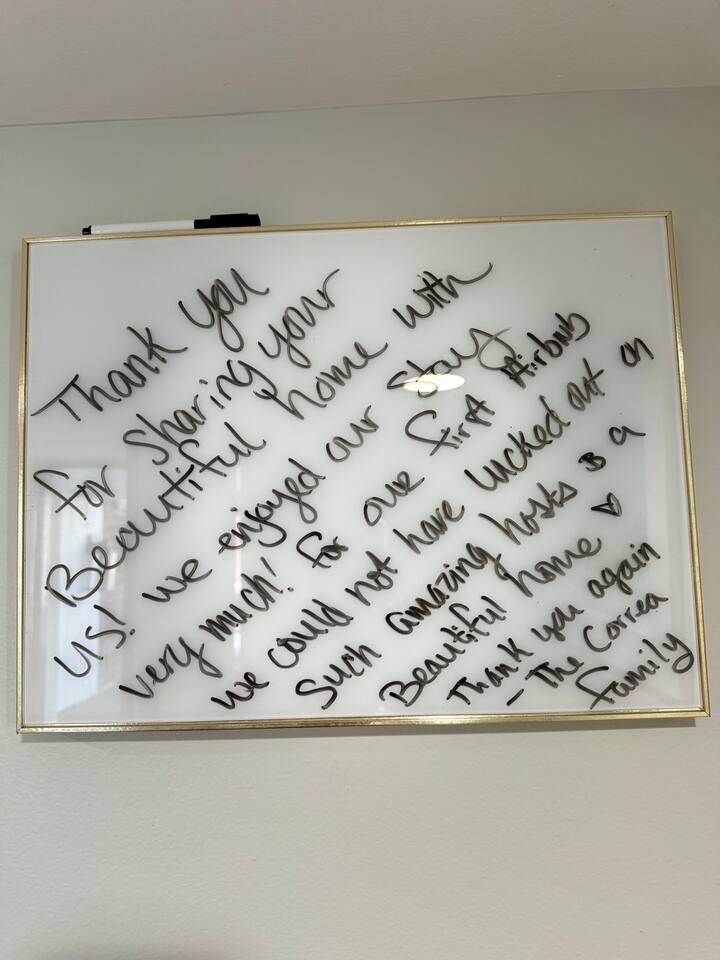 Thank you
for sharing your
Beautiful home with
us! we enjoyed our stay
very much! for our first Airbnb
we could not have lucked out on
such amazing hosts & a
Beautiful home ♡
Thank you again
- The Correa
family